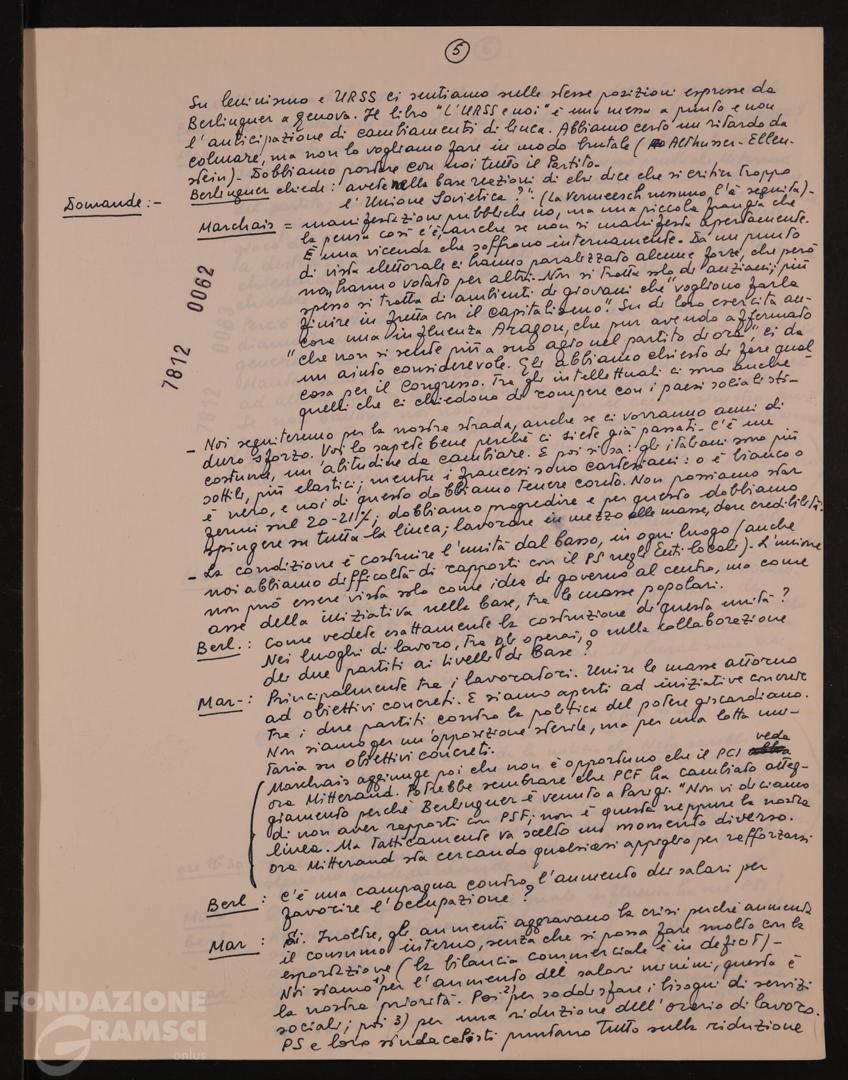 5
Su leninismo e URSS ci sentiamo sulle stesse posizioni espresse da
Berlinguer a Genova. Il libro "L'URSS e noi" è una messa a punto e non
l'anticipazione di cambiamenti di linea. Abbiamo certo un ritardo da
colmare, ma non lo vogliamo fare in modo brutale (Althusser-Ellen-
stein). Dobbiamo portare con noi tutto il Partito.
Domande:- Berlinguer chiede: avete nella base reazioni di chi dice che si critica troppo
l'Unione Sovietica?". (La Vermeersch nessuno l'ha seguita)-
Marchais = manifestazioni pubbliche no, ma una piccola frangia che
la pensa così c'è, anche se non si manifesta apertamente.
È una vicenda che soffrono internamente. Da un punto
di vista elettorale ci hanno paralizzato alcune forze, che però
non hanno votato per altri. Non si tratta solo di anziani; più
spesso si tratta di ambienti di giovani che "vogliono farla
finire in fretta con il capitalismo". Su di loro esercita an-
cora una influenza Aragon, che pur avendo affermato
"che non si sente più a suo agio nel partito di ora", ci da
un aiuto considerevole. Gli abbiamo chiesto di fare qual-
cosa per il Congresso. Tra gli intellettuali ci sono anche
quelli che ci chiedono di rompere con i paesi socialisti-
7812 0062
- Noi seguiteremo per la nostra strada, anche se ci vorranno anni di
duro sforzo. Voi lo sapete bene perché ci siete già passati. C'è un
costume, un'abitudine da cambiare. E poi si sa: gli italiani sono più
sottili, più elastici; mentre i francesi sono cartesiani: o è bianco o
è nero, e noi di questo dobbiamo tenere conto. Non possiamo star
fermi sul 20-21%; dobbiamo progredire e per questo dobbiamo
spingere su tutta la linea; lavorare in mezzo alle masse, dare credibilità.
- La condizione è costruire l'unità dal basso, in ogni luogo (anche
noi abbiamo difficoltà di rapporti con il PS negli Enti locali). L'unione
non può essere vista solo come idea di governo al centro, ma come
asse della iniziativa nella base, tra le masse popolari.
Berl.: Come vedete esattamente la costruzione di questa unità?
Nei luoghi di lavoro, tra gli operai, o nella collaborazione
dei due partiti ai livelli di Base?
Mar-: Principalmente tra i lavoratori. Unire le masse attorno
ad obiettivi concreti. E siamo aperti ad iniziative concrete
tra i due partiti contro la politica del potere giscardiano.
Non siamo per un'opposizione sterile, ma per una lotta uni-
taria su obiettivi concreti.
Marchais aggiunge poi che non è opportuno che il PCI veda
ora Mitterand. Potrebbe sembrare che PCF ha cambiato atteg-
giamento perché Berlinguer è venuto a Parigi. "Non vi diciamo
di non aver rapporti con PSF; non è questa neppure la nostra
linea. Ma tatticamente va scelto un momento diverso.
Ora Mitterand sta cercando qualsiasi appiglio per rafforzarsi
Berl: C'è una campagna contro l'aumento dei salari per
favorire l'occupazione?
Mar: Sì. Inoltre, gli aumenti aggravano la crisi perché aumenta
il consumo interno, senza che si possa fare molto con la
esportazione (la bilancia commerciale è in deficit)-
Noi siamo 1) per l'aumento dei salari minimi, questa è
la nostra priorità. Poi 2) per soddisfare i bisogni di servizi
sociali; poi 3) per una riduzione dell'orario di lavoro.
PS e loro sindacalisti puntano tutto sulla riduzione
FONDAZIONE
GRAMSCI
onlus